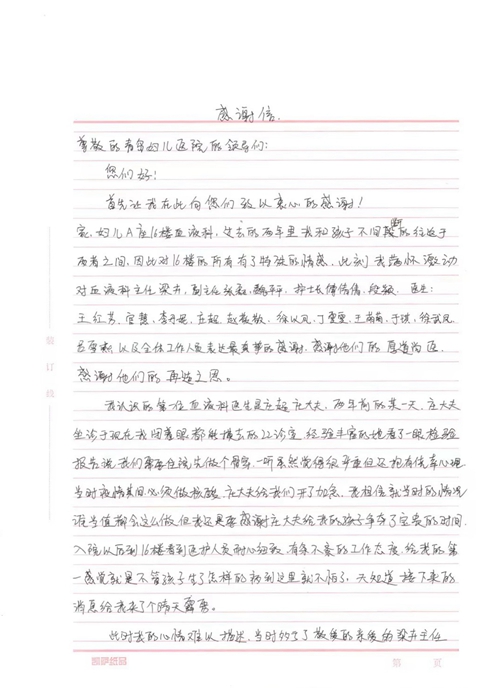 感谢信.
尊敬的青岛妇儿医院的领导们:
您们好!
首先让我在此向您们致以衷心的感谢!
家,妇儿A座16楼血液科,过去的两年里我和孩子不间断的往返于
两者之间,因此对16楼的所有有了特殊的情感。此刻我满怀激动
对血液科主任梁 副主任 护士长 医生:
王红芳、官慧、李 庄超、赵 徐 丁 王 于 徐
吕 以及全体工作人员表达最真挚的感谢,感谢他们的厚道尚医
感谢他们的再造之恩。
我认识的第一位血液科医生是庄超庄大夫,两年前的某一天,庄大夫
坐诊于现在我闭着眼都能摸去的22诊室,经验丰富的她看了一眼检验
报告说我们需要住院先做个骨穿,一听虽然觉得很严重但还抱有侥幸心理
当时疫情期间必须做核酸,庄大夫给我们开了加急,我相信就当时的情况
该当值都会这么做,但我还是要感谢庄大夫给我的孩子争夺了宝贵的时间.
入院以后到16楼看到医护人员耐心细致,有条不紊的工作态度,给我的第
一感觉就是不管孩子生了怎样的病到这里就不怕了,天知道接下来的
消息给我来了个晴天霹雳。
此时我的心情难以描述,当时的 了敬爱的亲爱的梁 主任
装订线
第 页